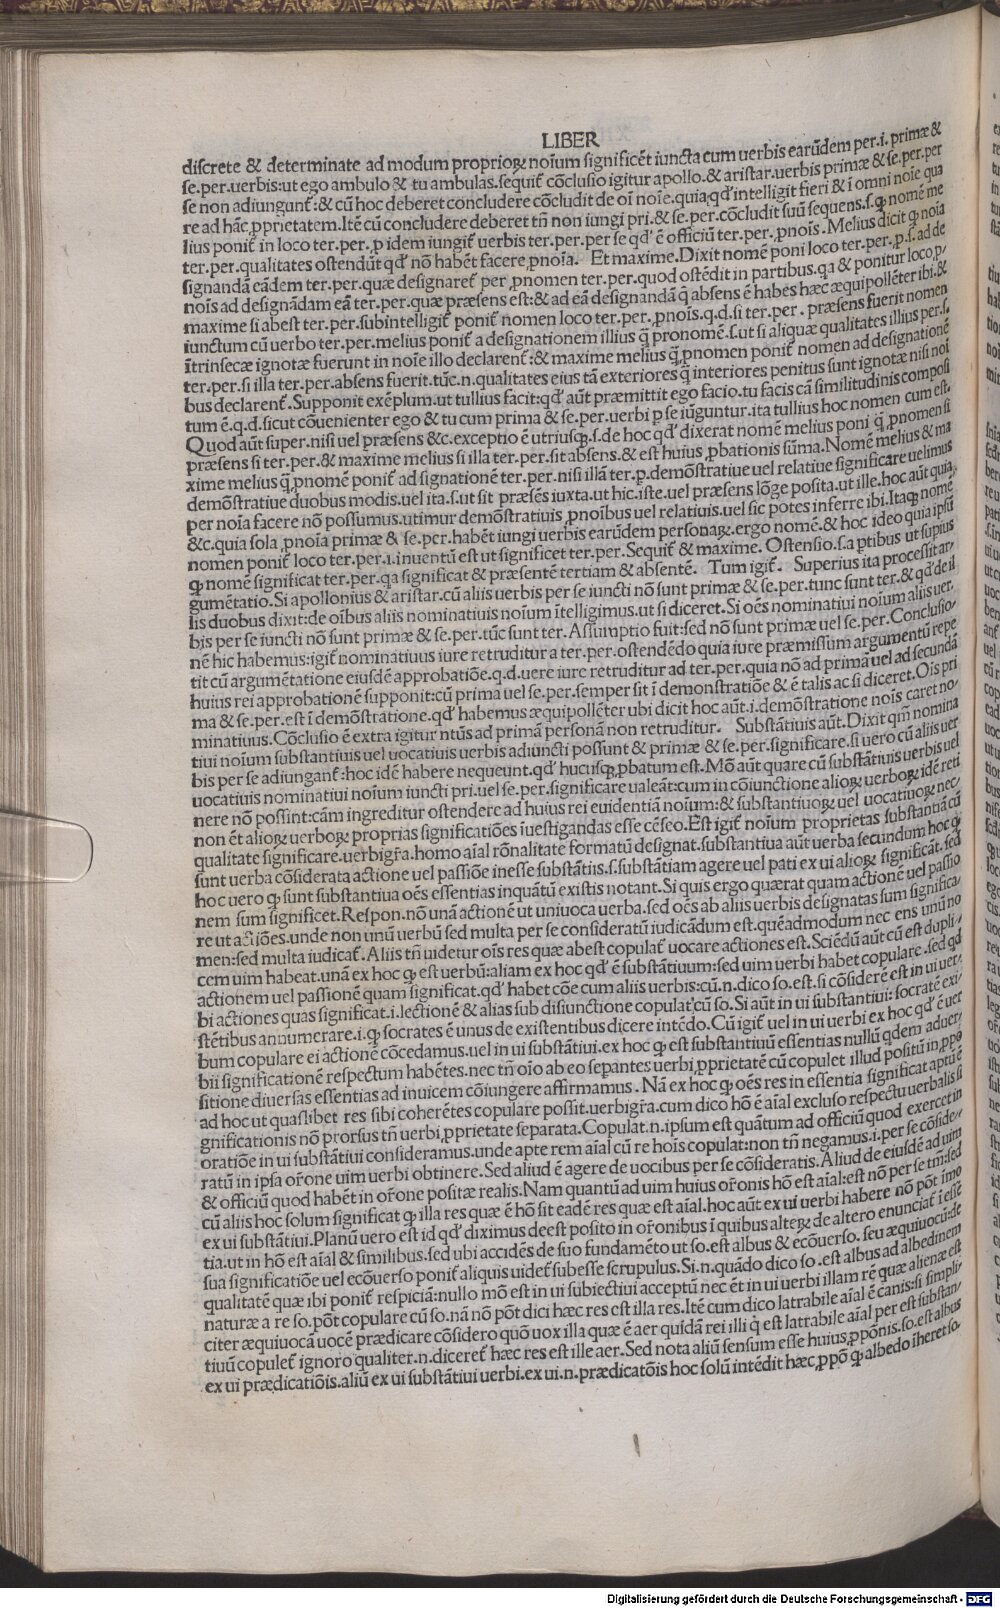 LIBER
discrete & determinate ad modum proprioꝝ noĩum significẽt iuncta cum uerbis earũdem per.i. primæ &
se.per.uerbis:ut ego ambulo & tu ambulas.sequiť cõclusio igitur apollo.& aristar.uerbis primæ & se.per.per
se non adiungunť:& cũ hoc deberet concludere cõcludit de oĩ noĩe.quia,qď intelligit fieri & ĩ omni noĩe qua
re ad hãc ꝓprietatem.Itẽ cũ concludere deberet tñ non iungi pri.& se.per.cõcludit suũ sequens.s.ꝙ nomẽ me
lius poniť in loco ter.per. ꝑ idem iungiť uerbis ter.per.per se qď ẽ officiũ ter.per.ꝓnois. Melius dicit ꝙ noĩa
ter.per.qualitates ostendũt qď nõ habẽt facere ꝓnoĩa. Et maxime.Dixit nomẽ poni loco ter.per.ꝓ.s.ad de
signandã eãdem ter.per.quæ designareť per ꝓnomen ter.per.quod ostẽdit in partibus.qa & ponitur loco,ꝓ/
nois ad designãdam eã ter.per.quæ præsens est:& ad eã designandã q̃ absens ẽ habes hæc æquipollẽter ibi.&
maxime si abest ter.per.subintelligiť poniť nomen loco ter.per.ꝓnois.q.d.si ter.per. præsens fuerit nomen
iunctum cũ uerbo ter.per.melius poniť a designationem illius q̃ pronomẽ.s.ut si aliquæ qualitates illius per.s.
ĩtrinsecæ ignotæ fuerunt in noĩe illo declarenť:& maxime melius q̃ ꝓnomen poniť nomen ad designationẽ
ter.per.si illa ter.per.absens fuerit.tũc.n.qualitates eius tã exteriores q̃ interiores penitus sunt ignotæ nisi noĩ
bus declarenť.Supponit exẽplum.ut tullius facit:qď aũt præmittit ego facio.tu facis cã similitudinis composi
tum ẽ.q.d.sicut cõuenienter ego & tu cum prima & se.per.uerbi ꝑ se iũguntur.ita tullius hoc nomen cum est.
Quod aũt super.nisi uel præsens &c.exceptio ẽ utriusꝙ.s.de hoc qď dixerat nomẽ melius poni q̃ ꝓnomen si
præsens si ter.per.& maxime melius si illa ter.per.sit absens.& est huius ꝓbationis sũma.Nomẽ melius & ma
xime melius q̃ ꝓnomẽ poniť ad signationẽ ter.per.nisi illã ter.ꝑ.demõstratiue uel relatiue significare uelimus
demõstratiue duobus modis.uel ita.s.ut sit præsẽs iuxta.ut hic.iste.uel præsens lõge posita.ut ille.hoc aũt quia
per noĩa facere nõ possumus.utimur demõstratiuis ꝓnoibus uel relatiuis.uel sic potes inferre ibi.Itaꝙ nomẽ
&c.quia sola ꝓnoĩa primæ & se.per.habẽt iungi uerbis earũdem personaꝝ.ergo nomẽ.& hoc ideo quia ipsũ
nomen poniť loco ter.per.i.inuentũ est ut significet ter.per.Sequiť & maxime. Ostensio.s.a ꝑtibus ut supius
ꝙ nomẽ significat ter.per.qa significat & præsentẽ tertiam & absentẽ. Tum igiť. Superius ita processit ar/
gumẽtatio.Si apollonius & aristar.cũ aliis uerbis per se iuncti nõ sunt primæ & se.per.tunc sunt ter.& qď de il
lis duobus dixit:de oĩbus aliis nominatiuis noĩum ĩtelligimus.ut si diceret.Si oẽs nominatiui noĩum aliis uer
bis per se iuncti nõ sunt primæ & se.per.tũc sunt ter.Assumptio fuit:sed nõ sunt primæ uel se.per.Conclusio/
nẽ hic habemus:igiť nominatiuus iure retruditur a ter.per.ostendẽdo quia iure præmissum argumentũ repe
tit cũ argumẽtatione eiusdẽ approbatiõe.q.d.uere iure retruditur ad ter.per.quia nõ ad primã uel ad secundã
huius rei approbationẽ supponit:cũ prima uel se.per.semper sit ĩ demonstratiõe & ẽ talis ac si diceret.Ois pri
ma & se.per.est ĩ demõstratione.qď habemus æquipollẽter ubi dicit hoc aũt.i.demõstratione nois caret no/
minatiuus.Cõclusio ẽ extra igitur ntũs ad primã personã non retruditur. Substãtiuis aũt.Dixit qm̃ nomina
tiui noĩum substantiuis uel uocatiuis uerbis adiuncti possũnt & primæ & se.per.significare.si uero cũ aliis uer
bis per se adiunganť:hoc idẽ habere nequeunt.qď hucusꝙ ꝓbatum est.Mõ aũt quare cũ substãtiuis uerbis uel
uocatiuis nominatiui noĩum iuncti pri.uel se.per.significare ualeãt:cum in cõiunctione alioꝝ uerboꝝ idẽ reti
nere nõ possint:cãm ingreditur ostendere ad huius rei euidentiã noĩum:& substantiuoꝝ uel uocatiuoꝝ nec/
non ẽt alioꝝ uerboꝝ proprias significatiões ĩuestigandas esse cẽseo.Est igiť noĩum proprietas substantiã cũ
qualitate significare.uerbigr̃a.homo aĩal rõnalitate formatũ designat.substantiua aũt uerba secundum hoc ꝙ
sunt uerba cõsiderata actione uel passiõe inesse substãtiis.s.substãtiam agere uel pati ex ui alioꝝ significãt.sed
hoc uero ꝙ sunt substantiua oẽs essentias inquãtũ existis notant.Si quis ergo quærat quam actionẽ uel passio
nem sum significet.Respon.nõ unã actionẽ ut uniuoca uerba.sed oẽs ab aliis uerbis designatas sum significa/
re ut actiões.unde non unũ uerbũ sed multa per se consideratũ iudicãdum est.quẽadmodum nec ens unũ no
men:sed multa iudicať.Aliis tñ uidetur oĩs res quæ abest copulať uocare actiones est.Sciẽdũ aũt cũ est dupli/
cem uim habeat.unã ex hoc ꝙ est uerbũ:aliam ex hoc qď ẽ substãtiuum:sed uim uerbi habet copulare .sed qď
actionem uel passionẽ quam significat.qď habet cõe cum aliis uerbis:cũ.n.dico so.est.si cõsiderẽ est in ui uer/
bi actiones quas significat.i.lectionẽ & alias sub disiunctione copulať cũ so.Si aũt in ui substantiui: socratẽ exi/
stẽtibus annumerare.i.ꝙ socrates ẽ unus de existentibus dicere intẽdo.Cũ igiť uel in ui uerbi ex hoc qď ẽ uer
bum copulare ei actionẽ cõcedamus.uel in ui substãtiui.ex hoc ꝙ est substantiuũ essentias nullũ qdem aduer/
bii significationẽ respectum habẽtes.nec tñ oĩo ab eo sepantes uerbi ꝓprietatẽ cũ copulet illud positũ in ꝓpo
sitione diuersas essentias ad inuicem cõiungere affirmamus . Nã ex hoc ꝙ oẽs res in essentia significat aptũ ẽ
ad hoc ut quaslibet res sibi coherẽtes copulare possit.uerbigr̃a.cum dico hõ ẽ aĩal excluso respectu uerbalis si
gnificationis nõ prorsus tñ uerbi ꝓprietate separata.Copulat.n.ipsum est quãtum ad officiũ quod exercet in
oratiõe in ui substãtiui consideramus.unde apte rem aĩal cũ re hois copulat:non tñ negamus.i.per se cõside/
ratũ in ipsa or̃one uim uerbi obtinere.Sed aliud ẽ agere de uocibus per se cõsideratis.Aliud de eiusdẽ ad uim
& officiũ quod habẽt in or̃one positæ realis.Nam quantũ ad uim huius or̃onis hõ est aĩal:est nõ per se tm̃:sed
cũ aliis hoc solum significat ꝙ illa res quæ ẽ hõ sit eadẽ res quæ est aĩal.hoc aũt ex ui uerbi habere nõ põt imo
ex ui substãtiui.Planũ uero est id qď diximus deest posito in or̃onibus ĩ quibus alteꝝ de altero enunciať ĩ esse
tia.ut in hõ est aĩal & similibus.sed ubi accidẽs de suo fundamẽto ut so.est albus & ecõuerso. seu æquiuocũ:de
sua significatiõe uel ecõuerso poniť aliquis uideť subesse scrupulus.Si.n.quãdo dico so .est albus ad albedinem
qualitatẽ quæ ibi poniť respiciã:nullo mõ est in ui subiectiui acceptũ nec ẽt in ui uerbi illam rẽ quæ alienæ est
naturæ a re so.põt copulare cũ so.nã nõ põt dici hæc res est illa res.Itẽ cum dico latrabile aĩal ẽ canis:si simpli/
citer æquiuocã uocẽ prædicare cõsidero quõ uox illa quæ ẽ aer quidã rei illi q̃ est latrabile aĩal per est substan/
tiuũ copuleť ignoro qualiter.n.dicereť hæc res est ille aer.Sed nota aliũ sensum esse huius ꝓpõnis.so.est albus
ex ui prædicatiõis.aliũ ex ui substãtiui uerbi.ex ui.n.prædicatõis hoc solũ intẽdit hæc ꝓpõ ꝙ albedo ĩheret so.
Digitalisierung gefördert durch die Deutsche Forschungsgemeinschaft - DFG